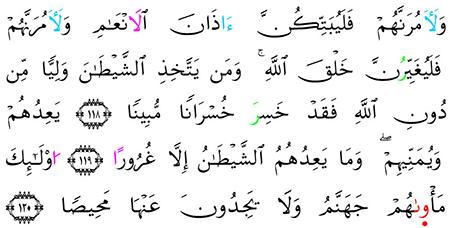 وَلَأٓمُرَنَّهُمْ فَلَيُبَتِّكُنَّ ءَاذَانَ اَلَانْعَٰمِ وَلَأٓمُرَنَّهُمْ
فَلَيُغَيِّرُنَّ خَلْقَ اَللَّهِۚ وَمَن يَتَّخِذِ اِلشَّيْطَٰنَ وَلِيّٗا مِّن
دُونِ اِللَّهِ فَقَدْ خَسِرَ خُسْرَانٗا مُّبِينٗا ١١٨ يَعِدُهُمْ
وَيُمَنِّيهِمْۖ وَمَا يَعِدُهُمُ اُلشَّيْطَٰنُ إِلَّا غُرُورًا ١١٩ اوْلَٰٓئِكَ
مَأْوۭىٰهُمْ جَهَنَّمُ وَلَا يَجِدُونَ عَنْهَا مَحِيصٗا ١٢٠